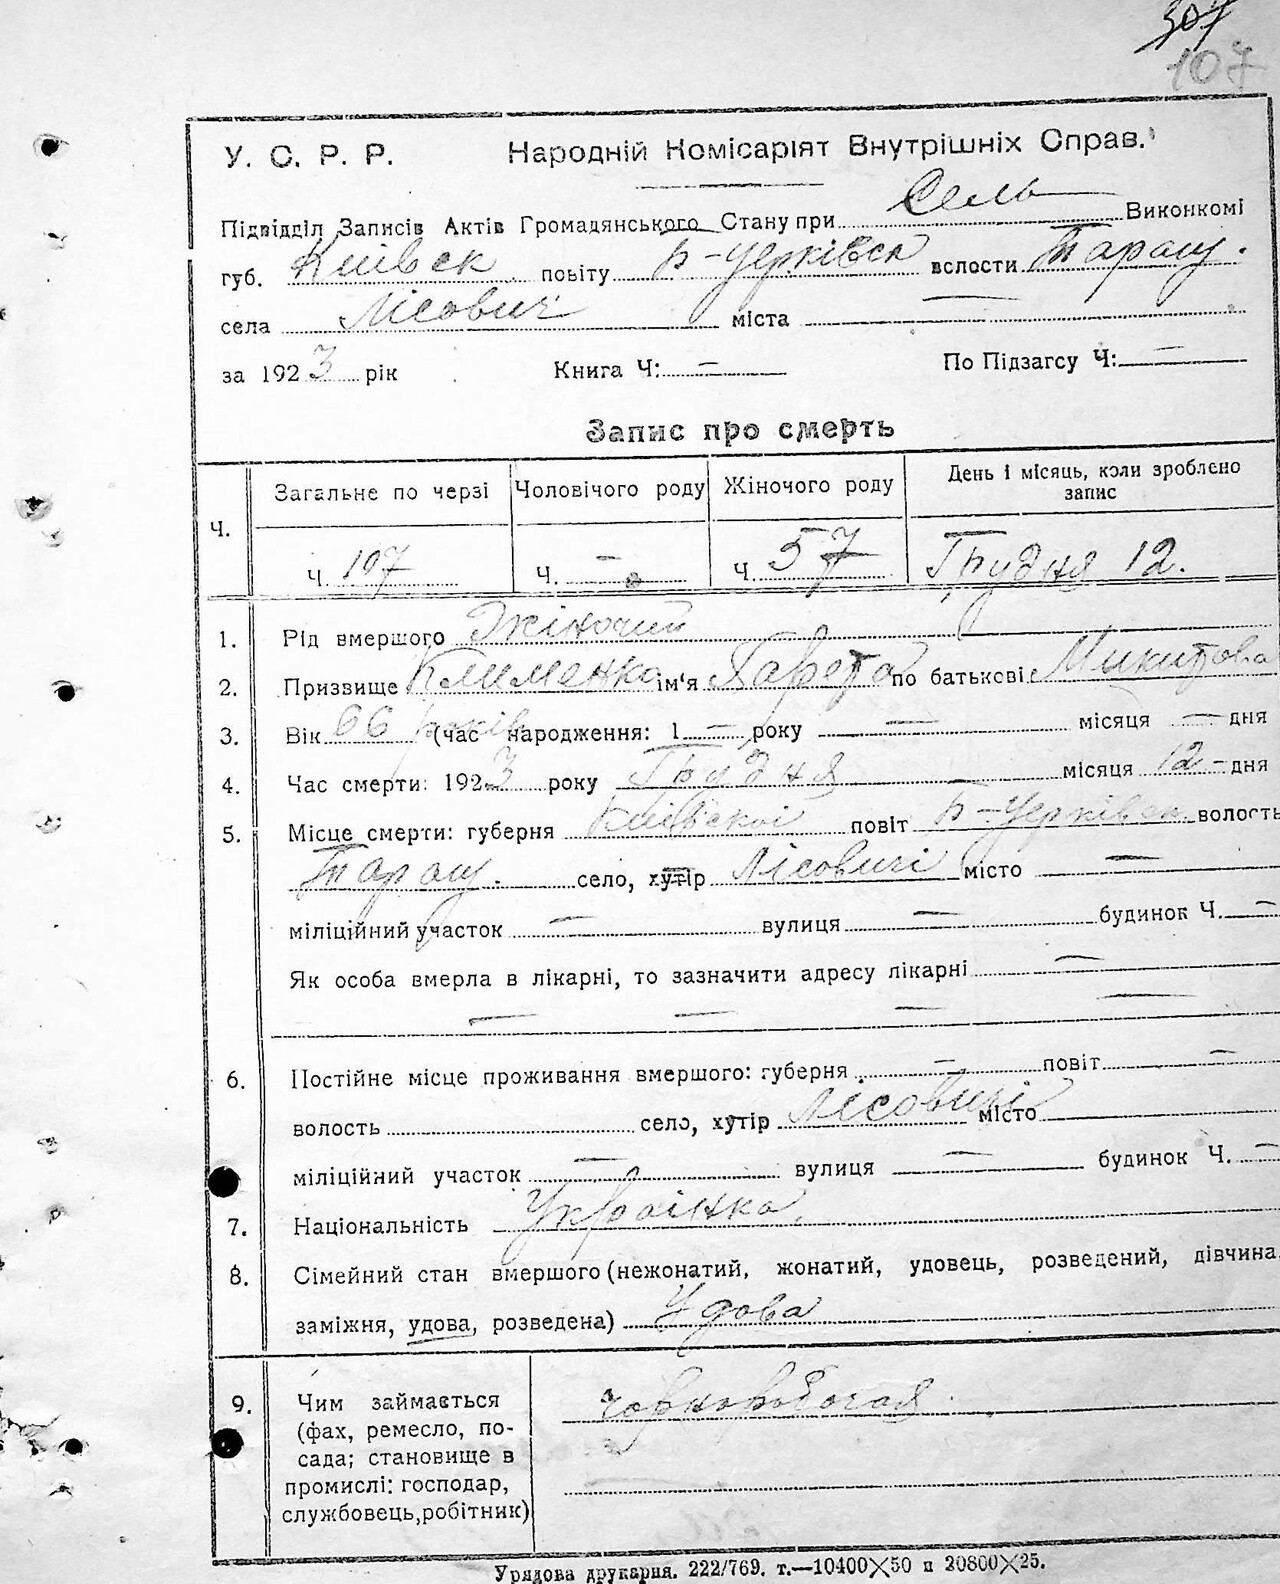 307
107
У. С. Р. Р. Народній Комісаріят Внутрішніх Справ.
Підвідділ Записів Актів Громадянського Стану при Сель Виконкомі
губ. Київск повіту Б-Церківск волости Таращ.
села Лісович міста —
за 1923 рік Книга Ч: — По Підзагсу Ч: —
Запис про смерть
Ч. Загальне по черзі Чоловічого роду Жіночого роду День і місяць, коли зроблено запис
Ч. 107 Ч. — Ч. 57 Грудня 12.
1. Рід вмершого Жіночий
2. Призвище Клименко ім'я по батькові Микитова
3. Вік 66 років (час народження: 1 — року — місяця — дня
4. Час смерти: 1923 року Грудня місяця 12 – дня
5. Місце смерти: губерня Київскої повіт Б-Церківск волость
Таращ. село, хутір Лісовичі місто —
міліційний участок — вулиця — будинок Ч. —
Як особа вмерла в лікарні, то зазначити адресу лікарні —
— — — —
6. Постійне місце проживання вмершого: губерня — повіт —
волость село, хутір Лісовичі місто
міліційний участок — вулиця — будинок Ч. —
7. Національність Українка
8. Сімейний стан вмершого (нежонатий, жонатий, удовець, розведений, дівчина,
заміжня, удова, розведена) Удова
9. Чим займається чорноробочая
(фах, ремесло, по-
сада; становище в
промислі: господар,
службовець, робітник)
Урядова друкарня. 222/769. т.—10400×50 п 20800×25.